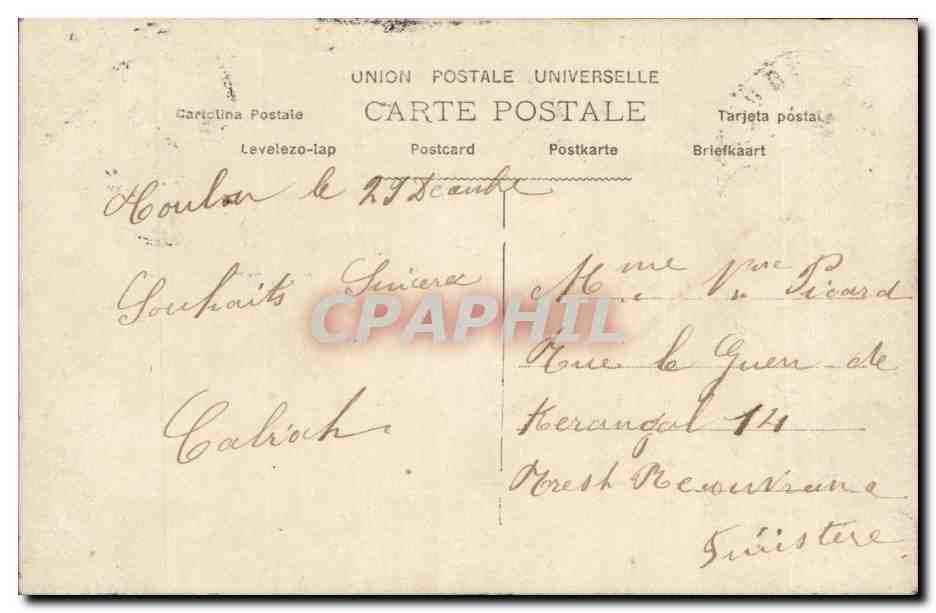 UNION POSTALE UNIVERSELLE
CARTE POSTALE
Cartolina Postale Tarjeta postale
Levelezo-lap Postcard Postkarte Briefkaart
Toulon le 29 Decembre
Souhaits Sincerex
CPAPHIL
Calvich
Mme Vve Picard
Rue le Guen de
Kerangal 14
Brest Recouvrance
Finistere